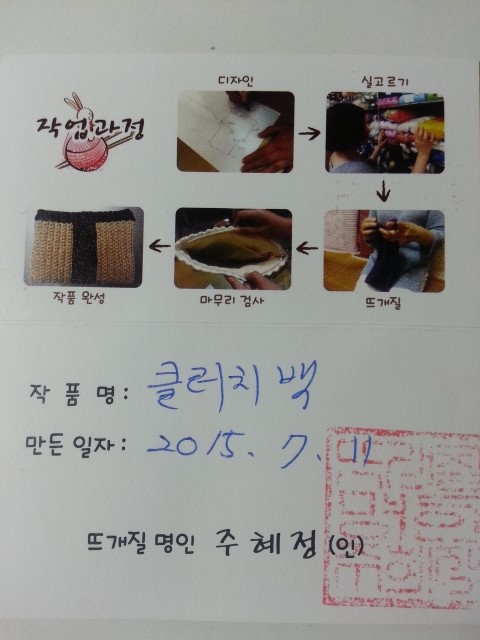 작업과정
디자인
실고르기
뜨개질
마무리 검사
작품 완성
작 품 명 : 클러치 백
만든 일자 : 2015. 7. 11
뜨개질 명인 주혜정 (인)